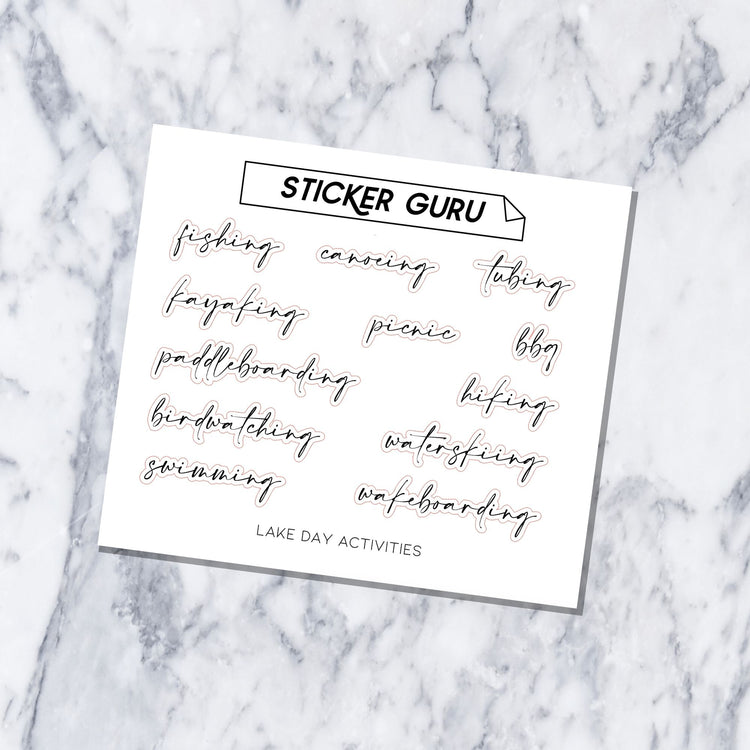 STICKER GURU
fishing canoeing tubing
kayaking picnic bbq
paddleboarding hiking
birdwatching waterskiing
swimming wakeboarding
LAKE DAY ACTIVITIES